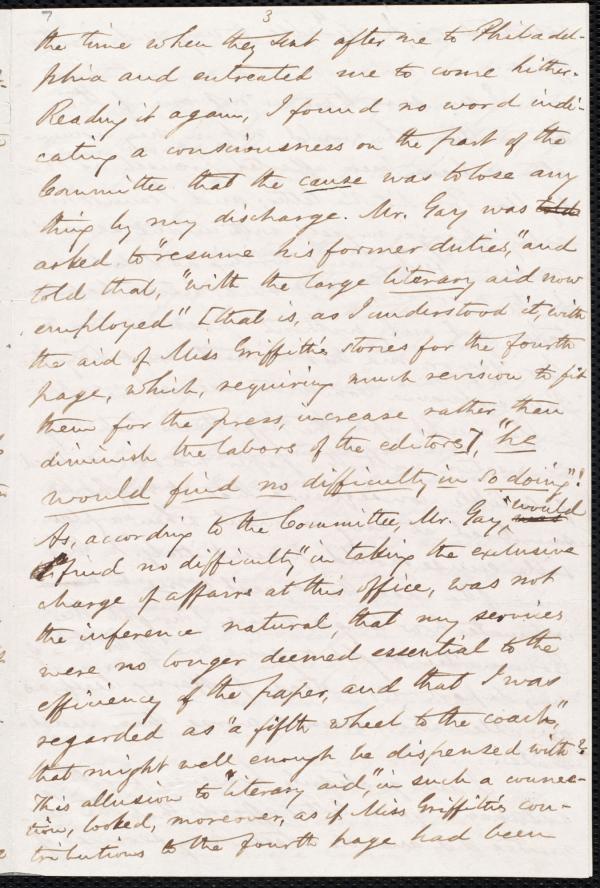 7 3
the time when they sent after me to Philadel-
phia and entreated me to come hither.
Reading it again, I found no word indi-
cating a consciousness on the part of the
Committee that the cause was to lose any
thing by my discharge. Mr. Gay was told
asked to "resume his former duties," and
told that, "with the large literary aid now
employed" [that is, as I understood it, with
the aid of Miss Griffith's stories for the fourth
page, which, requiring much revision to fit
them for the press, increase rather than
diminish the labors of the editors], "he
would find no difficulty in so doing"!
As, according to the Committee, Mr. Gay "would
find no difficulty," in taking the exclusive
charge of affairs at this office, was not
the inference natural, that my services
were no longer deemed essential to the
efficiency of the paper, and that I was
regarded as "a fifth wheel to the coach,"
that might well enough be dispensed with?
This allusion to "literary aid," in such a connec-
tion, looked, moreover, as if Miss Griffith's con-
tributions to the fourth page had been